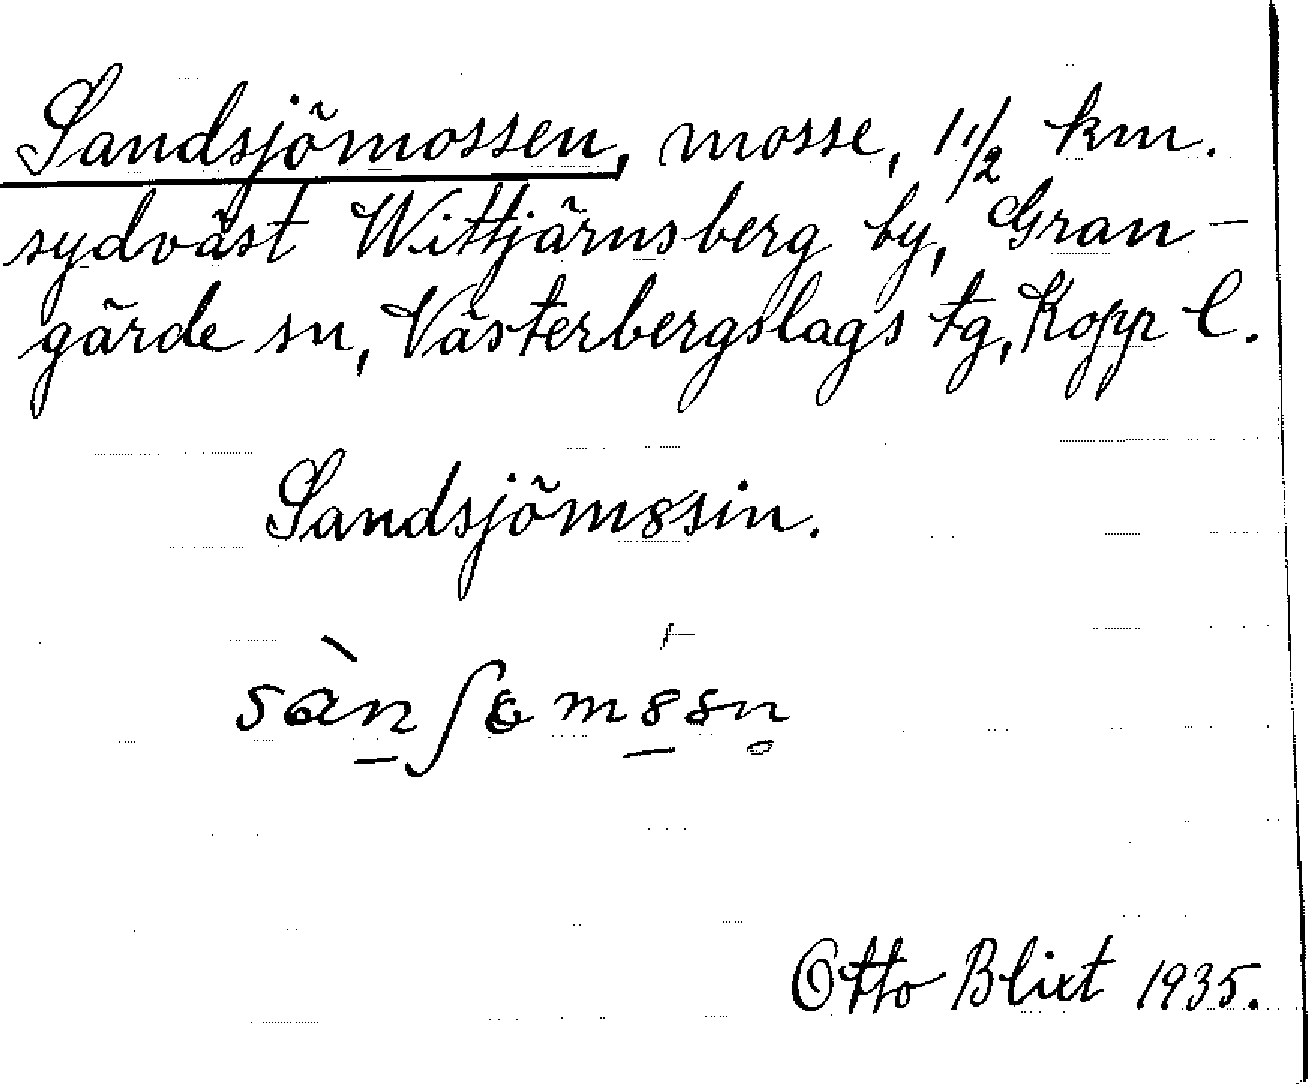 Sandsjömossen, mosse, 1 1/2 km.
sydväst Wittjärnsberg by, Gran-
gärde sn, Västerbergslags tg, Kopp l.
Sandsjöm8sin.
sàn̠ʃɞm8̠sn̥
Otto Blixt 1935.